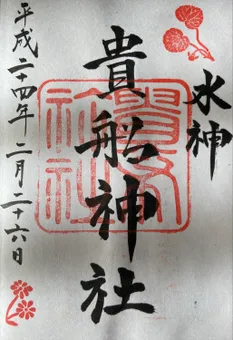 水神
貴船神社
平成二十四年二月二十六日
貴船
神社